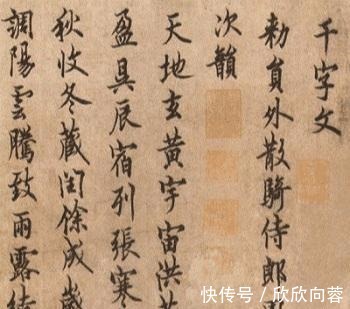 千字文
勑員外散騎侍郎
次韻
天地玄黃宇宙洪荒
盈昃辰宿列張寒
秋收冬藏閏餘成歲
調陽雲騰致雨露結
快传号 / 欣欣向蓉